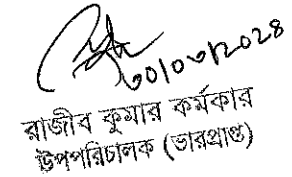 ৩০/০৬/২০২৪
রাজীব কুমার কর্মকার
উপপরিচালক (ভারপ্রাপ্ত)